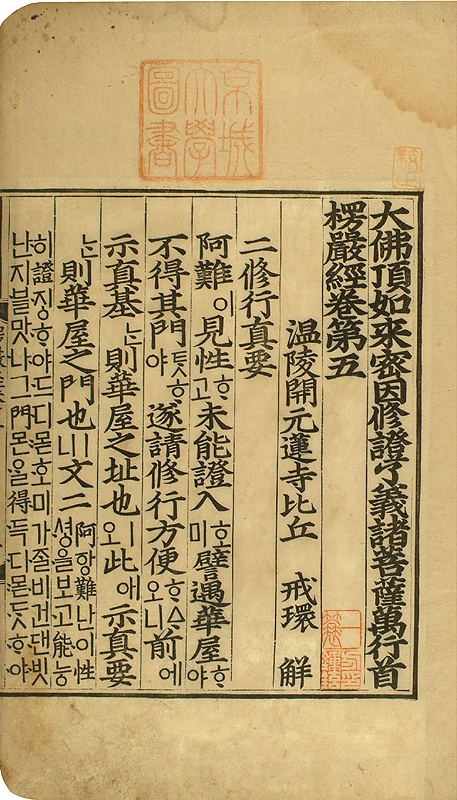 大佛頂如來密因修證了義諸菩薩萬行首
楞嚴經卷第五
温陵開元蓮寺比丘 戒環 解
二修行真要
阿難이見性고ᄒᆞ未能證入미ᄒᆞ譬遇華屋ᄒᆞ야
不得其門야ᄐᆞᆺᄒᆞ遂請修行方便오니ᄒᆞᅀᆞ前에
示真基ᄂᆞᆫ則華屋之址也오ㅣ此애示真要
ᄂᆞᆫ則華屋之門也ㅣ니文二
阿항難난이性
셩을보고能능
히證징ᄒᆞ야드디몯호미가ᄌᆞᆯ비건댄빗
난지블맛나그門몬을得득디몯ᄃᆞᆺᄒᆞ야
京城
大學
圖書